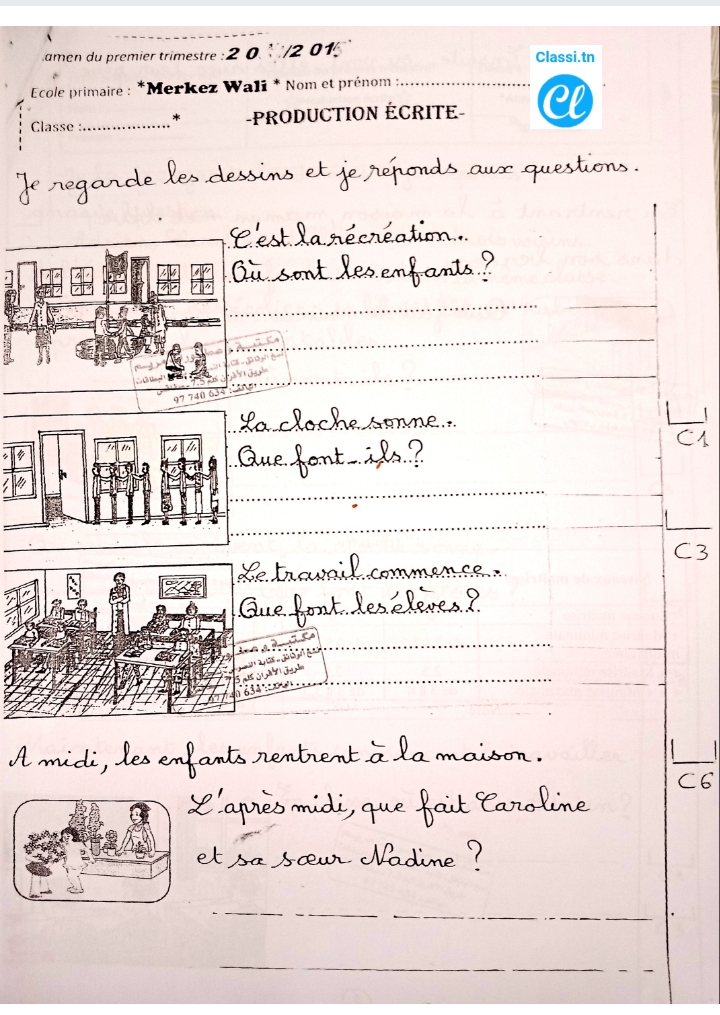 amen du premier trimestre : 20 /2015
Classi.tn
Cl
Ecole primaire : *Merkez Wali * Nom et prénom :
Classe : * -PRODUCTION ÉCRITE-
Je regarde les dessins et je réponds aux questions.
C'est la récréation.
Où sont les enfants ?
مكتبة و
97 740 634
La cloche sonne.
Que font-ils ?
C1
C3
Le travail commence.
Que font les élèves ?
مكتبة و
A midi, les enfants rentrent à la maison.
C6
L'après midi, que fait Caroline
et sa sœur Nadine ?